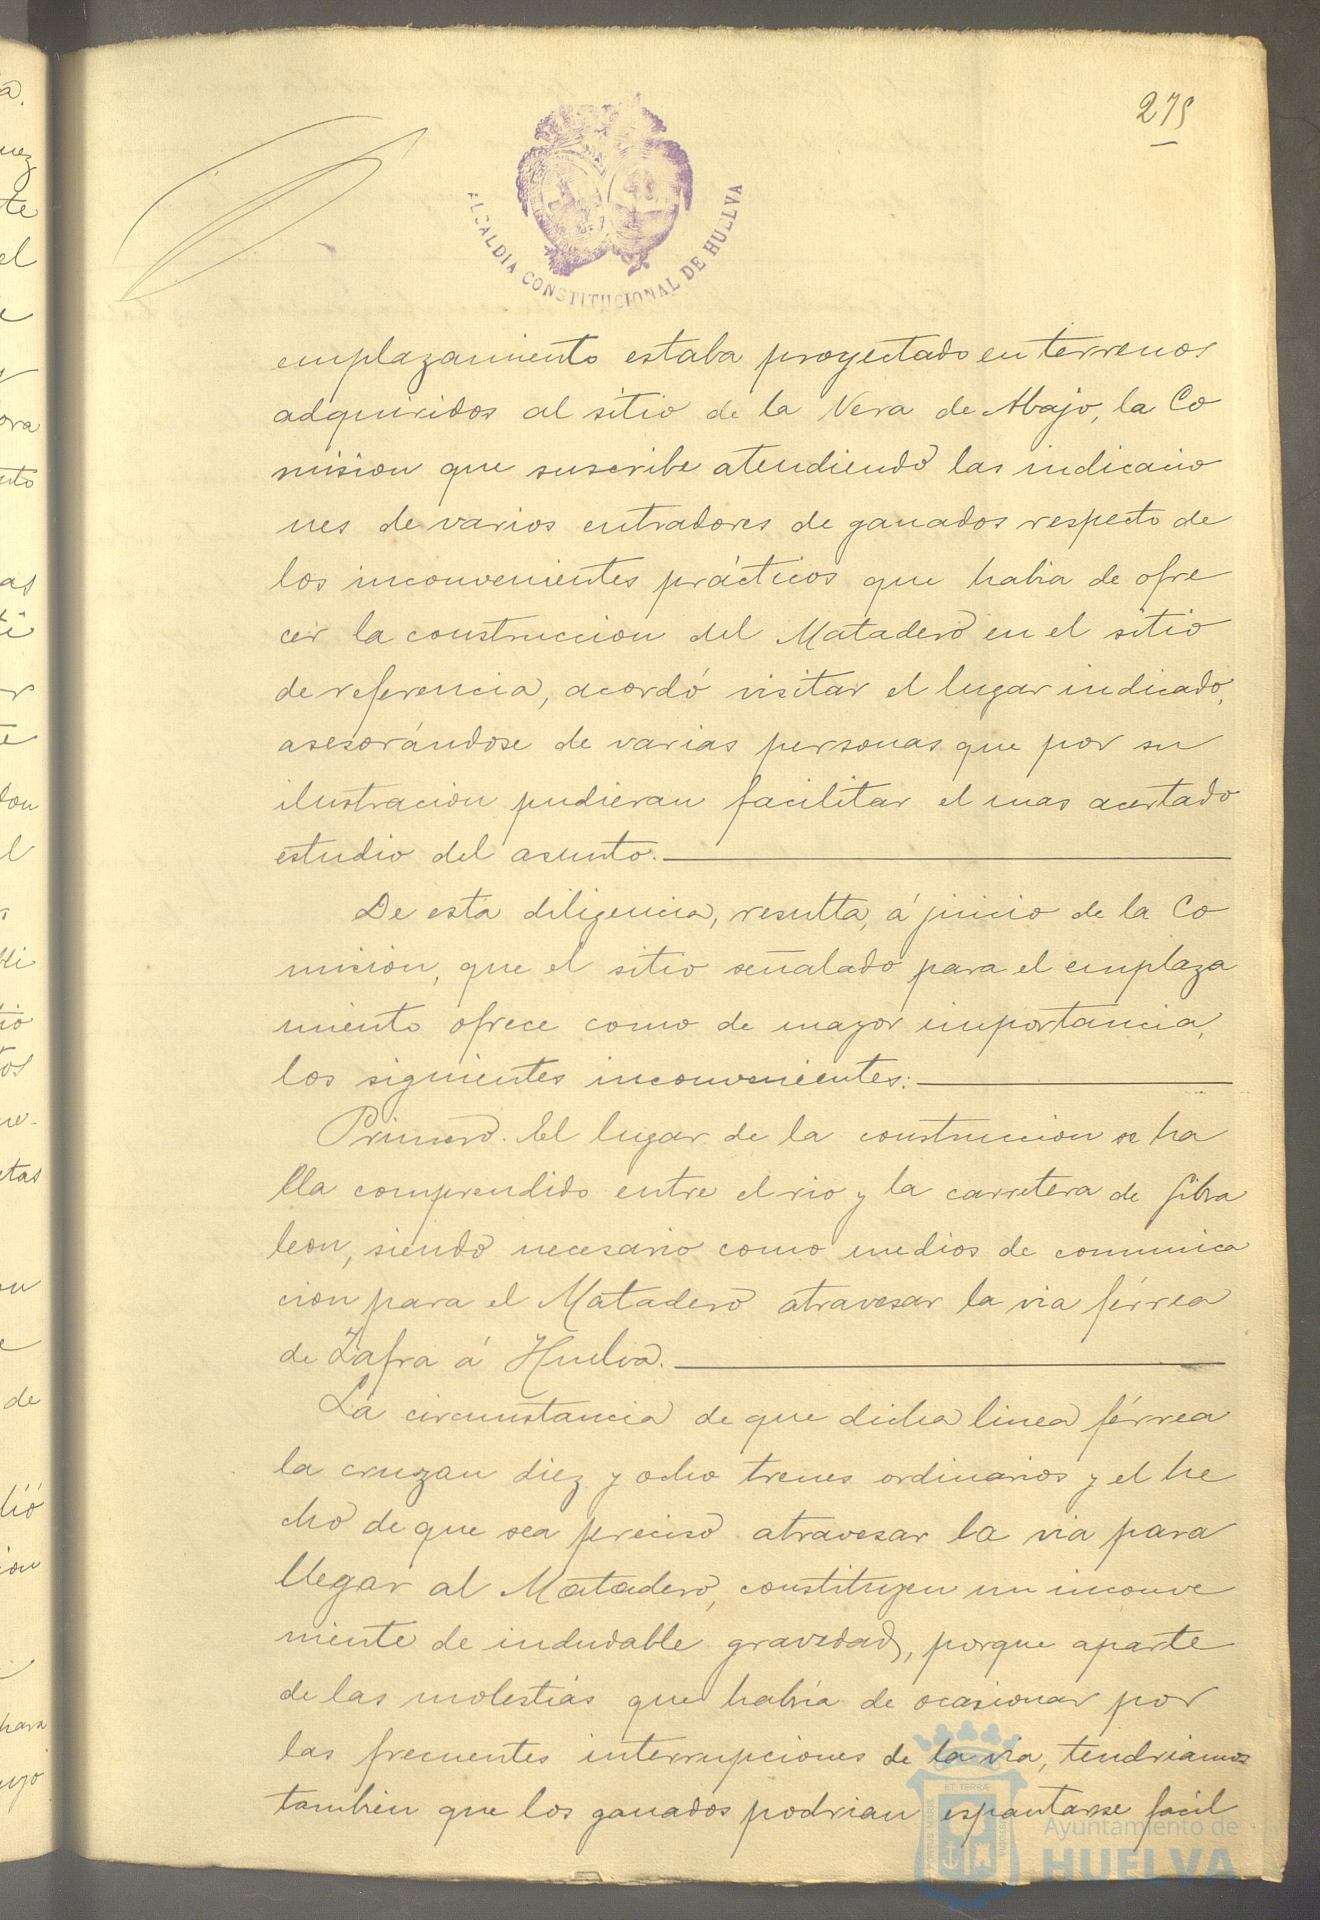 275
ALCALDIA CONSTITUCIONAL DE HUELVA
emplazamiento estaba proyectado en terrenos
adquiridos al sitio de la Vera de Abajo, la Co
mision que suscribe atendiendo las indicacio
nes de varios entradores de ganados respecto de
los inconvenientes prácticos que habia de ofre
cer la construccion del Matadero en el sitio
de referencia, acordó visitar el lugar indicado,
asesorándose de varias personas que por su
ilustracion pudieran facilitar el mas acertado
estudio del asunto.
De esta diligencia, resulta, á juicio de la Co
mision, que el sitio señalado para el emplaza
miento ofrece como de mayor importancia,
los siguientes inconvenientes:
Primero. El lugar de la construccion se ha
lla comprendido entre el rio y la carretera de Gibra
leon, siendo necesario como medios de comunica
cion para el Matadero atravesar la via férrea
de Zafra á Huelva.
La circunstancia de que dicha linea férrea
la cruzan diez y ocho trenes ordinarios y el he
cho de que sea preciso atravesar la via para
llegar al Matadero, constituyen un inconve
niente de indudable gravedad, porque aparte
de las molestias que habría de ocasionar por
las frecuentes interrupciones de la via, tendriamos
tambien que los ganados podrian espantarse facil
Ayuntamiento de
HUELVA